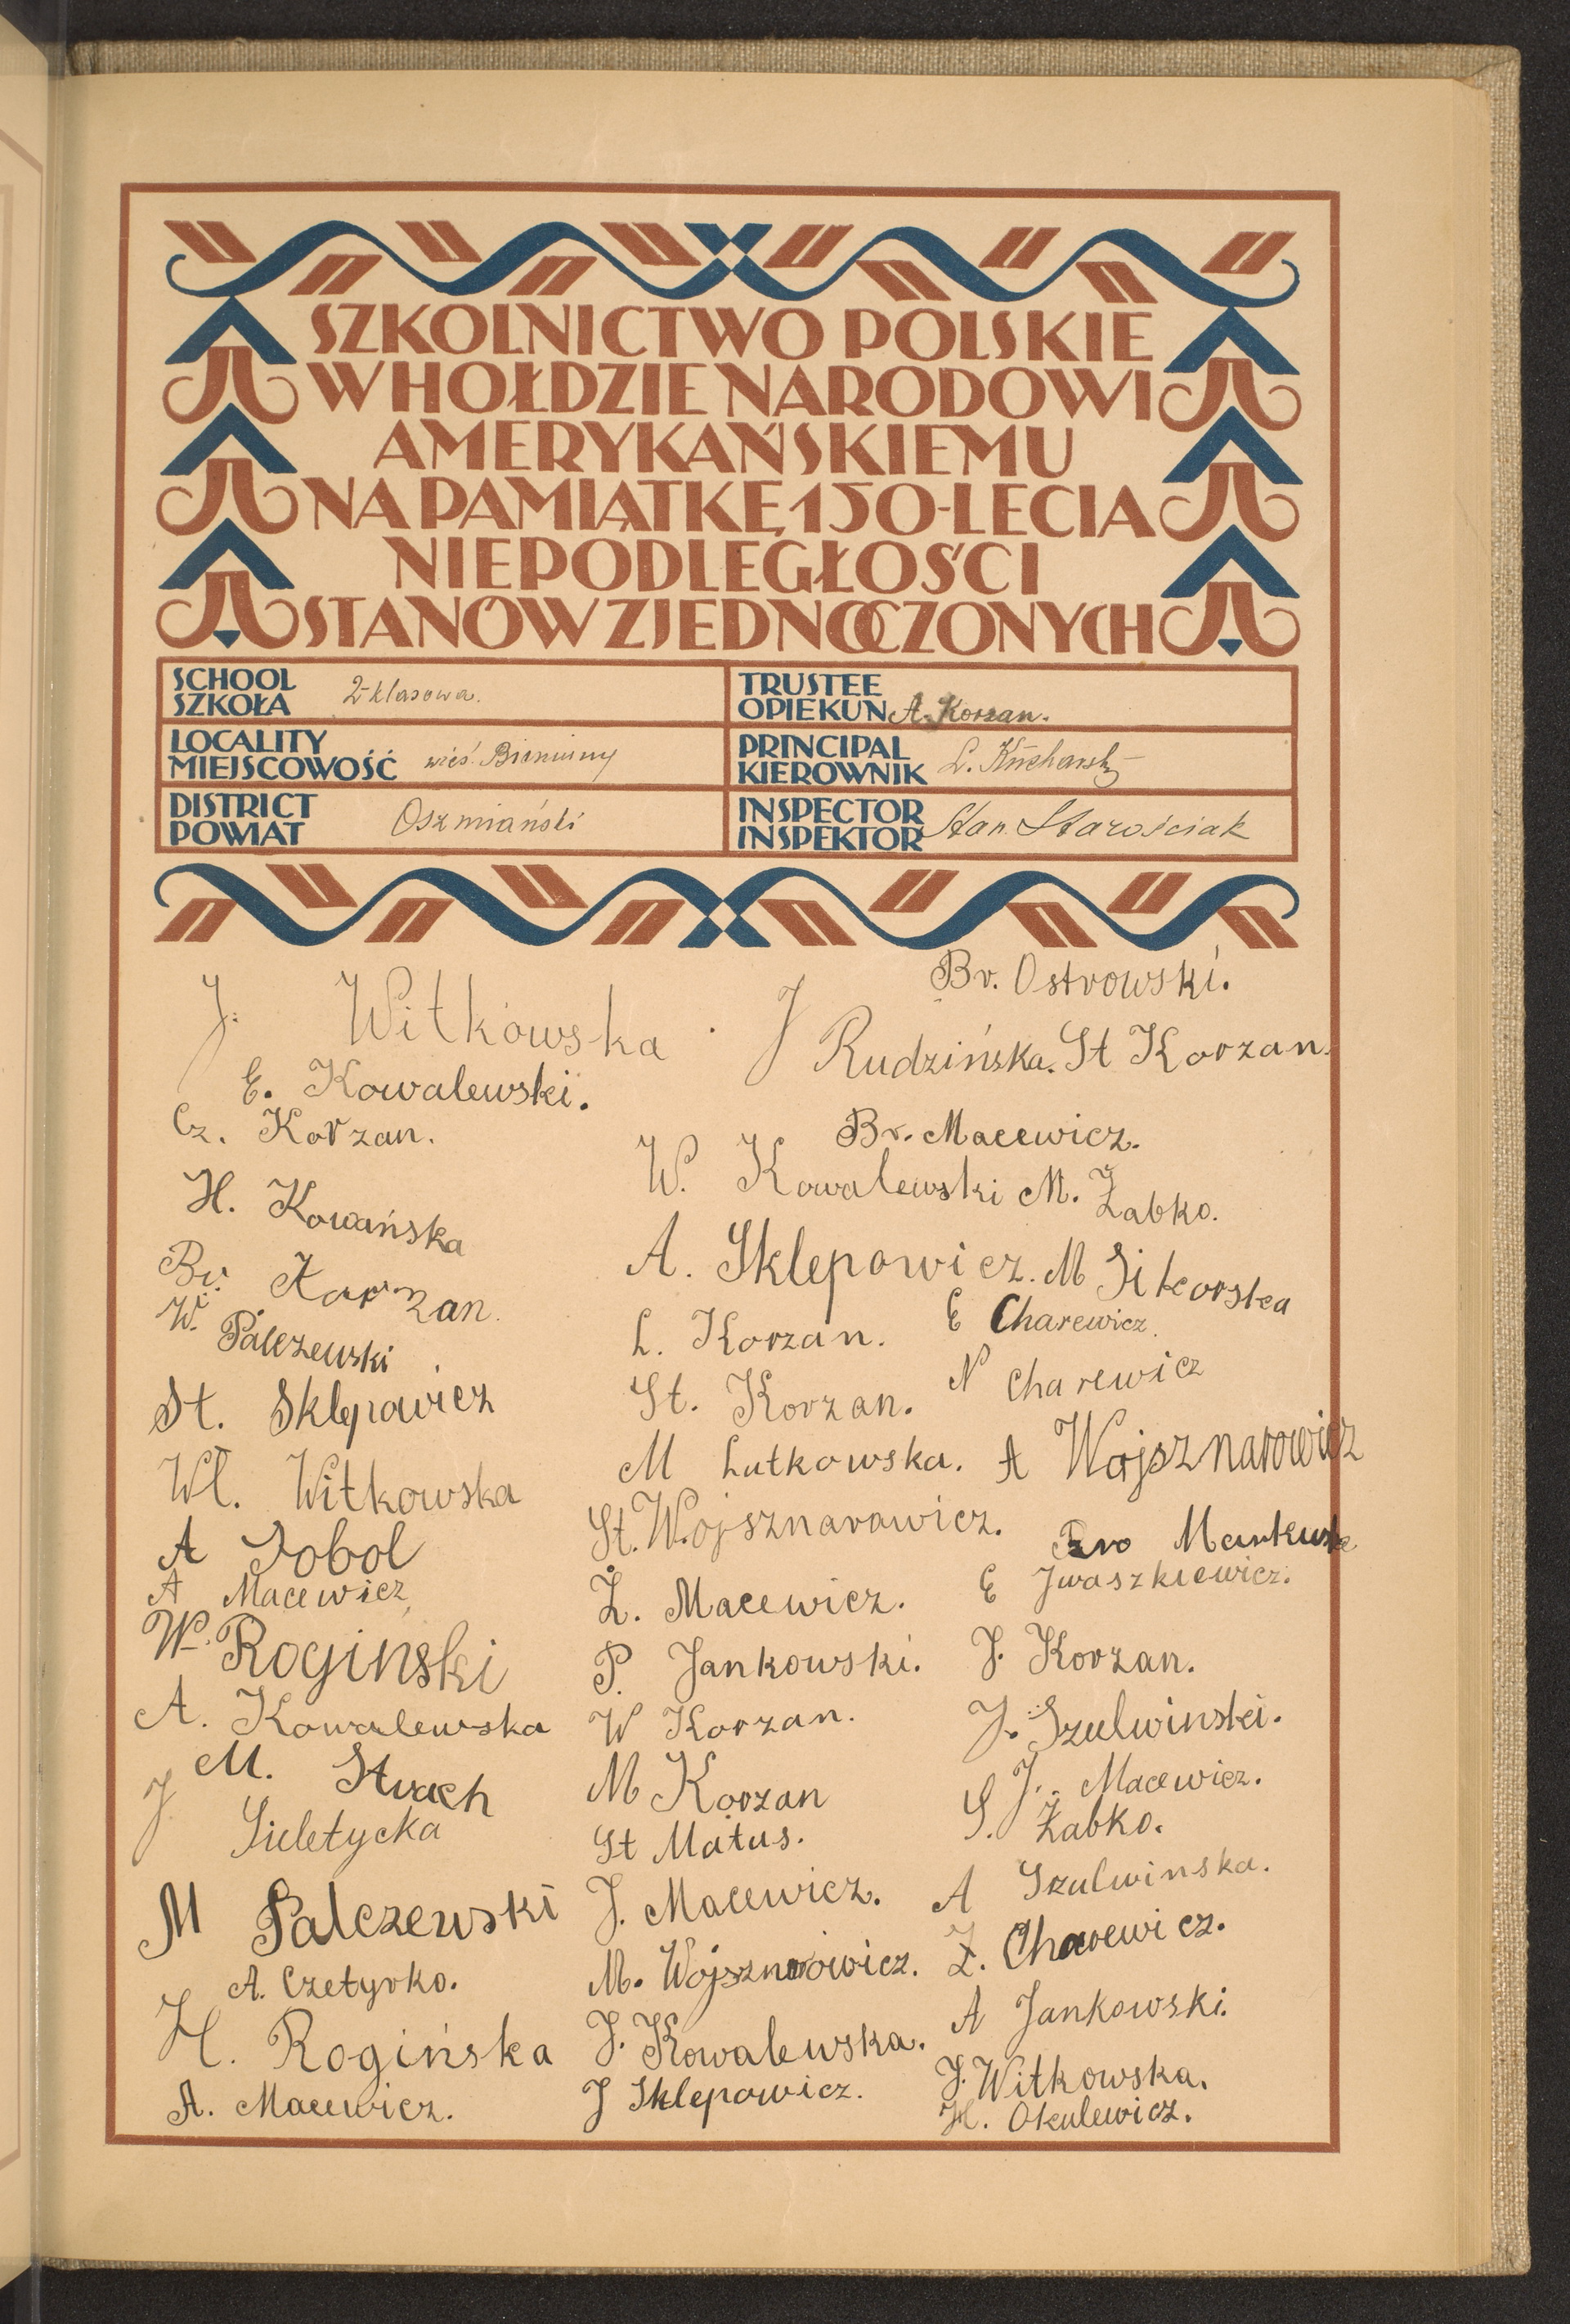 SZKOLNICTWO POLSKIE
W HOŁDZIE NARODOWI
AMERYKAŃSKIEMU
NA PAMIĄTKĘ 150-LECIA
NIEPODLEGŁOŚCI
STANÓW ZJEDNOCZONYCH
SCHOOL
SZKOŁA 2-klasowa.
TRUSTEE
OPIEKUN A. Korzan.
LOCALITY
MIEJSCOWOŚĆ wieś
PRINCIPAL
KIEROWNIK L. Kucharski
DISTRICT
POWIAT Oszmiański
INSPECTOR
INSPEKTOR Stan. Starościak
J. Witkowska
E. Kowalewski.
Cz. Korzan.
H. Kowańska
Br. Korzan.
W. Palczewski
St. Sklepowicz
Wł. Witkowska
A Sobol
A Macewicz
W. Roginski
A. Kowalewska
M. Struch
J Sieletycka
M Palczewski
A. Czetyrko.
H. Rogińska
A. Macewicz.
J Rudzińska.
W. Kowalewski
A. Sklepowicz.
L. Korzan.
St. Korzan.
M Lutkowska.
St. Wojsznarowicz.
Ż. Macewicz.
P. Jankowski.
W Korzan.
M Korzan
St Matus.
J. Macewicz.
M. Wojsznarowicz.
J. Kowalewska.
J Sklepowicz.
Br. Ostrowski.
St Korzan.
Br. Macewicz.
M. Żabko.
M Sikorska
E Charewicz.
N Charewicz
A Wojsznarowicz
E Iwaszkiewicz.
J. Korzan.
J. Szulwinski.
J. Macewicz.
S. Żabko.
A Szulwinska.
Z. Charewicz.
A Jankowski.
J. Witkowska.
H. Okulewicz.